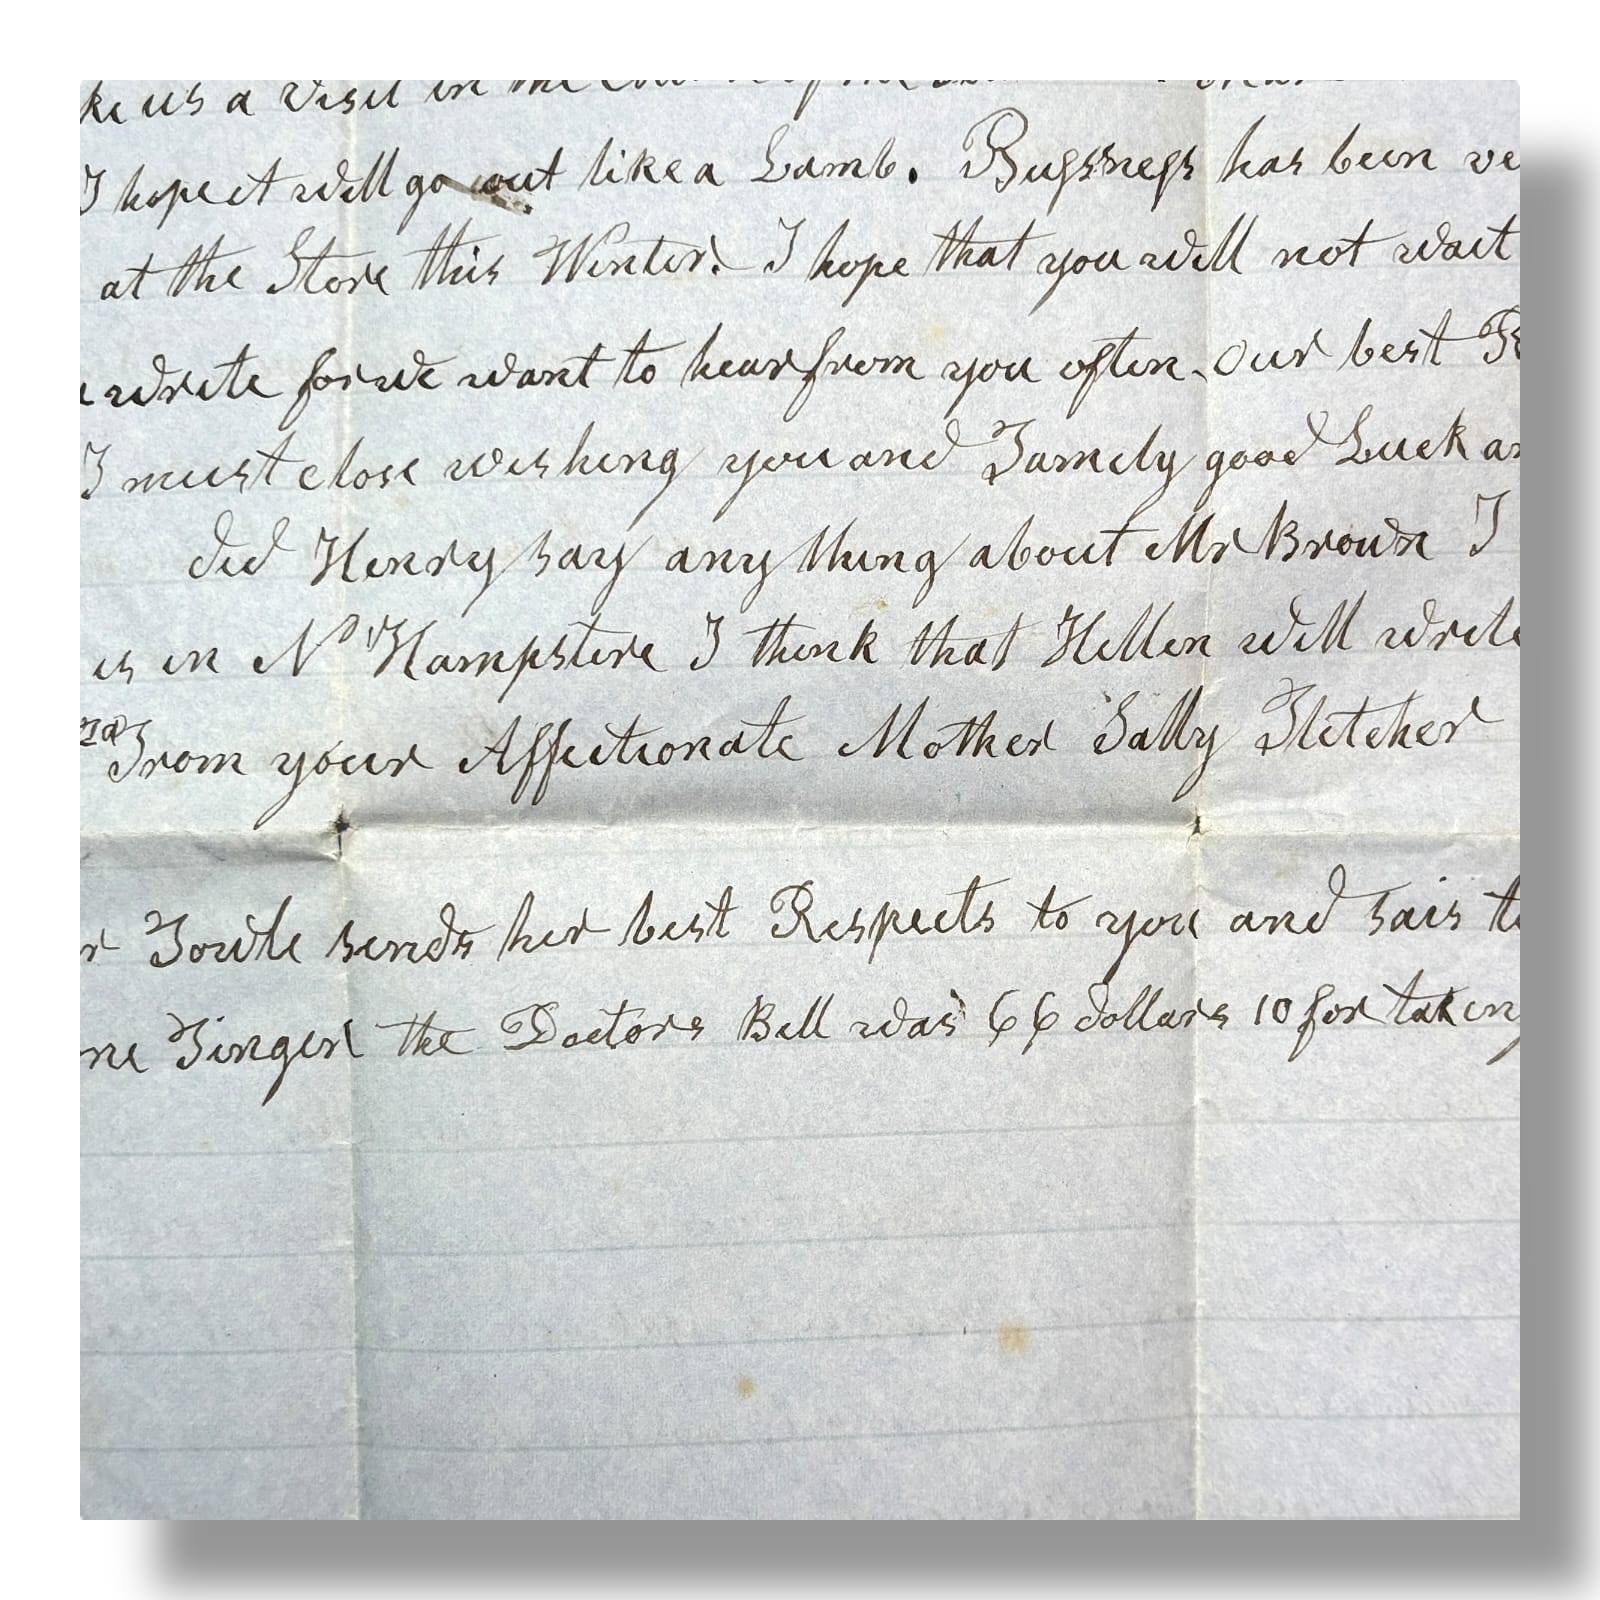 ke us a visit in the
I hope it will go out like a Lamb. Bussness has been ve
at the Store this Winter. I hope that you will not wait
write for we want to hear from you often. Our best R
I must close wishing you and Famely good Luck an
did Henry say any thing about Mr Brown I
is in N Hampstire I think that Hellen will write
From your Affectionate Mother Sally Fletcher
r Fowle sends her best Respects to you and sais t
ne Finger the Doctors Bill was 66 dollars 10 for taking